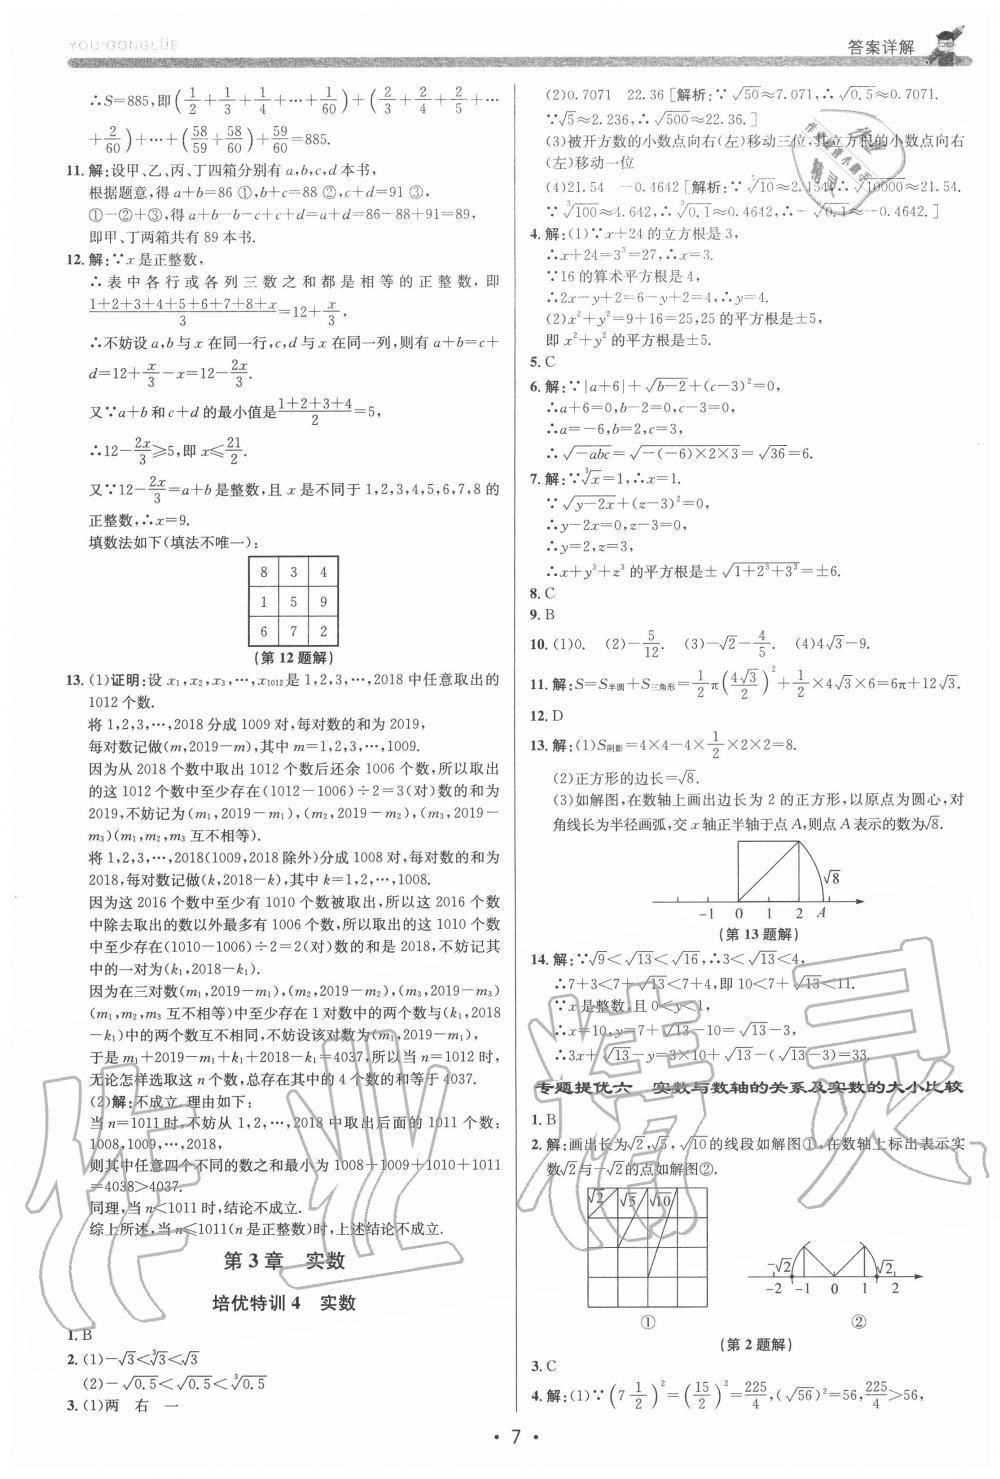 YOU·GONGLÜE
答案详解
∴S=885,即(1/2+1/3+1/4+…+1/60)+(2/3+2/4+2/5+…
+2/60)+…+(58/59+58/60)+59/60=885.
11.解:设甲、乙、丙、丁四箱分别有a,b,c,d本书,
根据题意,得a+b=86 ①,b+c=88 ②,c+d=91 ③,
①-②+③,得a+b-b-c+c+d=a+d=86-88+91=89,
即甲、丁两箱共有89本书.
12.解:∵x是正整数,
∴表中各行或各列三数之和都是相等的正整数,即
(1+2+3+4+5+6+7+8+x)/3=12+x/3,
∴不妨设a,b与x在同一行,c,d与x在同一列,则有a+b=c+
d=12+x/3-x=12-2x/3.
又∵a+b和c+d的最小值是(1+2+3+4)/2=5,
∴12-2x/3≥5,即x≤21/2.
又∵12-2x/3=a+b是整数,且x是不同于1,2,3,4,5,6,7,8的
正整数,∴x=9.
填数法如下(填法不唯一):
8 3 4
1 5 9
6 7 2
(第12题解)
13.(1)证明:设x₁,x₂,x₃,…,x₁₀₁₂是1,2,3,…,2018中任意取出的
1012个数.
将1,2,3,…,2018分成1009对,每对数的和为2019,
每对数记做(m,2019-m),其中m=1,2,3,…,1009.
因为从2018个数中取出1012个数后还余1006个数,所以取出
的这1012个数中至少存在(1012-1006)÷2=3(对)数的和为
2019,不妨记为(m₁,2019-m₁),(m₂,2019-m₂),(m₃,2019-
m₃)(m₁,m₂,m₃互不相等).
将1,2,3,…,2018(1009,2018除外)分成1008对,每对数的和为
2018,每对数记做(k,2018-k),其中k=1,2,…,1008.
因为这2016个数中至少有1010个数被取出,所以这2016个数
中除去取出的数以外最多有1006个数,所以取出的这1010个数
中至少存在(1010-1006)÷2=2(对)数的和是2018,不妨记其
中的一对为(k₁,2018-k₁).
因为在三对数(m₁,2019-m₁),(m₂,2019-m₂),(m₃,2019-m₃)
(m₁,m₂,m₃互不相等)中至少存在1对数中的两个数与(k₁,2018
-k₁)中的两个数互不相同,不妨设该对数为(m₁,2019-m₁),
于是m₁+2019-m₁+k₁+2018-k₁=4037,所以当n=1012时,
无论怎样选取这n个数,总存在其中的4个数的和等于4037.
(2)解:不成立.理由如下:
当n=1011时,不妨从1,2,…,2018中取出后面的1011个数:
1008,1009,…,2018,
则其中任意四个不同的数之和最小为1008+1009+1010+1011
=4038>4037.
同理,当n<1011时,结论不成立.
综上所述,当n≤1011(n是正整数)时,上述结论不成立.
第3章 实数
培优特训4 实数
1.B
2.(1)-√3<∛3<√3
(2)-√0.5<√0.5<∛0.5
3.(1)两 右 一
(2)0.7071 22.36[解析:∵√50≈7.071,∴√0.5≈0.7071.
∵√5≈2.236,∴√500≈22.36.]
(3)被开方数的小数点向右(左)移动三位,其立方根的小数点向右
(左)移动一位
(4)21.54 -0.4642[解析:∵∛10≈2.154,∴∛10000≈21.54.
∵∛100≈4.642,∴∛0.1≈0.4642,∴-∛0.1≈-0.4642.]
4.解:(1)∵x+24的立方根是3,
∴x+24=3³=27,∴x=3.
∵16的算术平方根是4,
∴2x-y+2=6-y+2=4,∴y=4.
(2)x²+y²=9+16=25,25的平方根是±5,
即x²+y²的平方根是±5.
5.C
6.解:∵|a+6|+√(b-2)+(c-3)²=0,
∴a+6=0,b-2=0,c-3=0,
∴a=-6,b=2,c=3,
∴√(-abc)=√(-(-6)×2×3)=√36=6.
7.解:∵∛x=1,∴x=1.
∵√(y-2x)+(z-3)²=0,
∴y-2x=0,z-3=0,
∴y=2,z=3,
∴x+y³+z³的平方根是±√(1+2³+3³)=±6.
8.C
9.B
10.(1)0. (2)-5/12. (3)-√2-4/5. (4)4√3-9.
11.解:S=S半圆+S三角形=1/2π(4√3/2)²+1/2×4√3×6=6π+12√3.
12.D
13.解:(1)S阴影=4×4-4×1/2×2×2=8.
(2)正方形的边长=√8.
(3)如解图,在数轴上画出边长为2的正方形,以原点为圆心,对
角线长为半径画弧,交x轴正半轴于点A,则点A表示的数为√8.
√8
-1 0 1 2 A
(第13题解)
14.解:∵√9<√13<√16,∴3<√13<4,
∴7+3<7+√13<7+4,即10<7+√13<11.
∵x是整数,且0<y<1,
∴x=10,y=7+√13-10=√13-3,
∴3x+√13-y=3×10+√13-(√13-3)=33.
专题提优六 实数与数轴的关系及实数的大小比较
1.B
2.解:画出长为√2,√5,√10的线段如解图①,在数轴上标出表示实
数√2与-√2的点如解图②.
√2 √5 √10
①
-√2 √2
-2 -1 0 1 2
②
(第2题解)
3.C
4.解:(1)∵(7 1/2)²=(15/2)²=225/4,(√56)²=56,225/4>56,
·7·
作业精灵